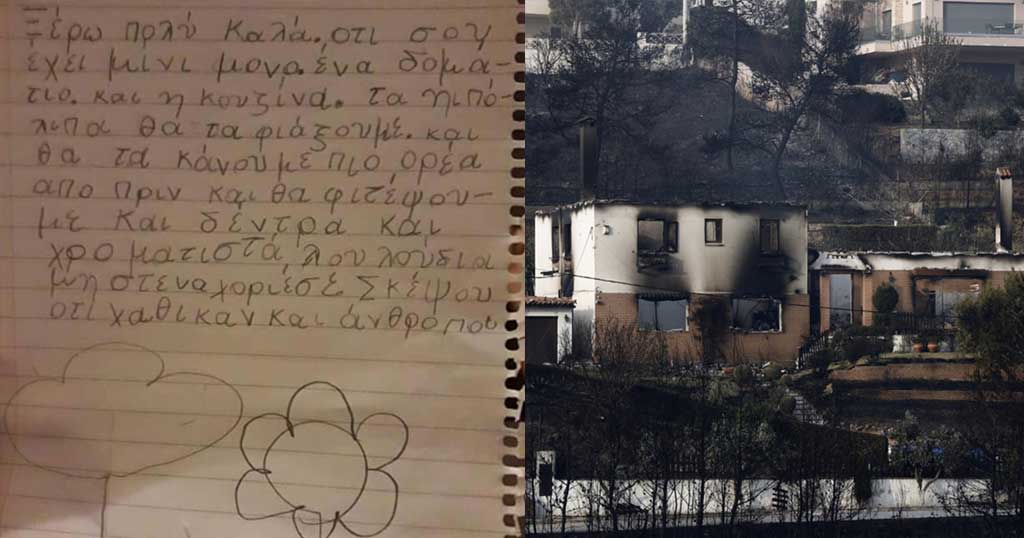 Ξέρω πολύ καλά. οτι σου
έχει μίνι μονο. ένα δομά-
τιο. και η κουζίνα. τα ηιπό-
λιπα θα τα φιάξουμέ. και
θα τα κάνουμέ πιο ορέα
απο πριν και θα φιτέψου-
μέ και δέντρα και
χροματιστά, λουλούδια
μη στεναχοριέσέ Σκέψου
οτι χαθικαν και άνθροποι